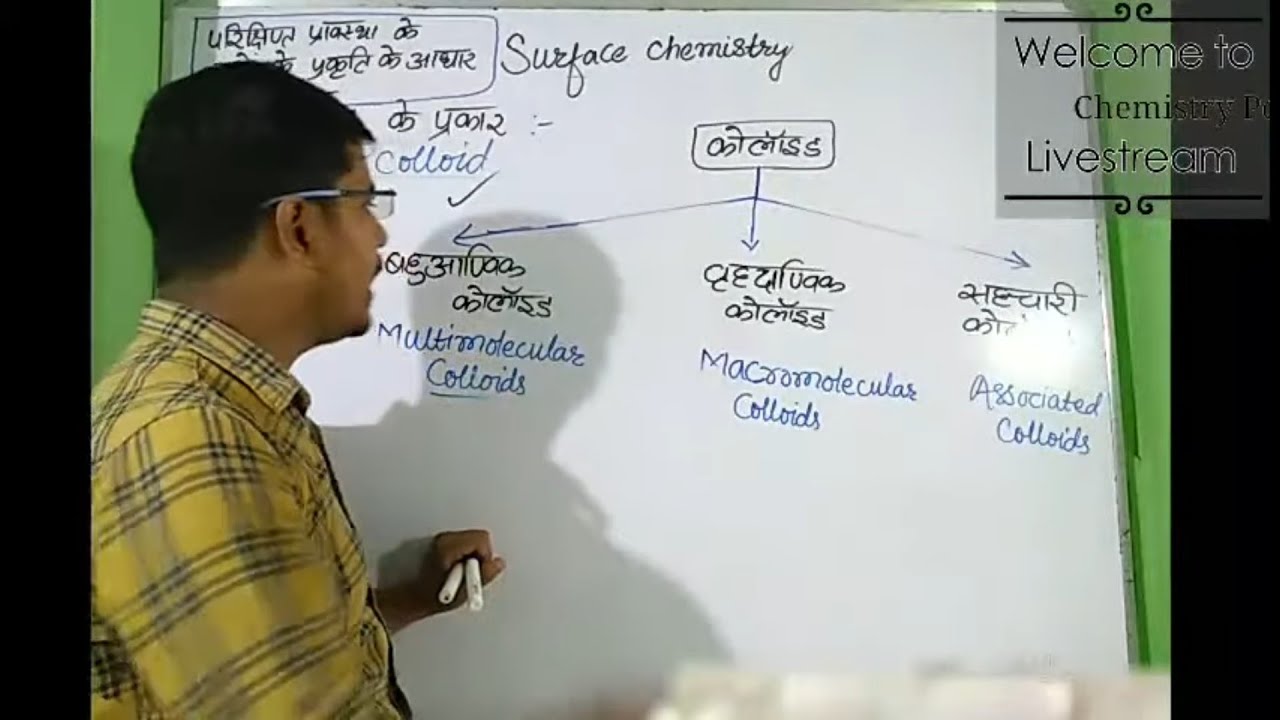 परिक्षिप्त प्रावस्था के
के प्रकृति के आधार
Surface chemistry
के प्रकार :-
Colloid
कोलॉइड
बहुआण्विक
कोलॉइड
Multimolecular
Colloids
वृहदाण्विक
कोलॉइड
Macromolecular
Colloids
सहचारी
Associated
Colloids
Welcome to
Chemistry
Livestream